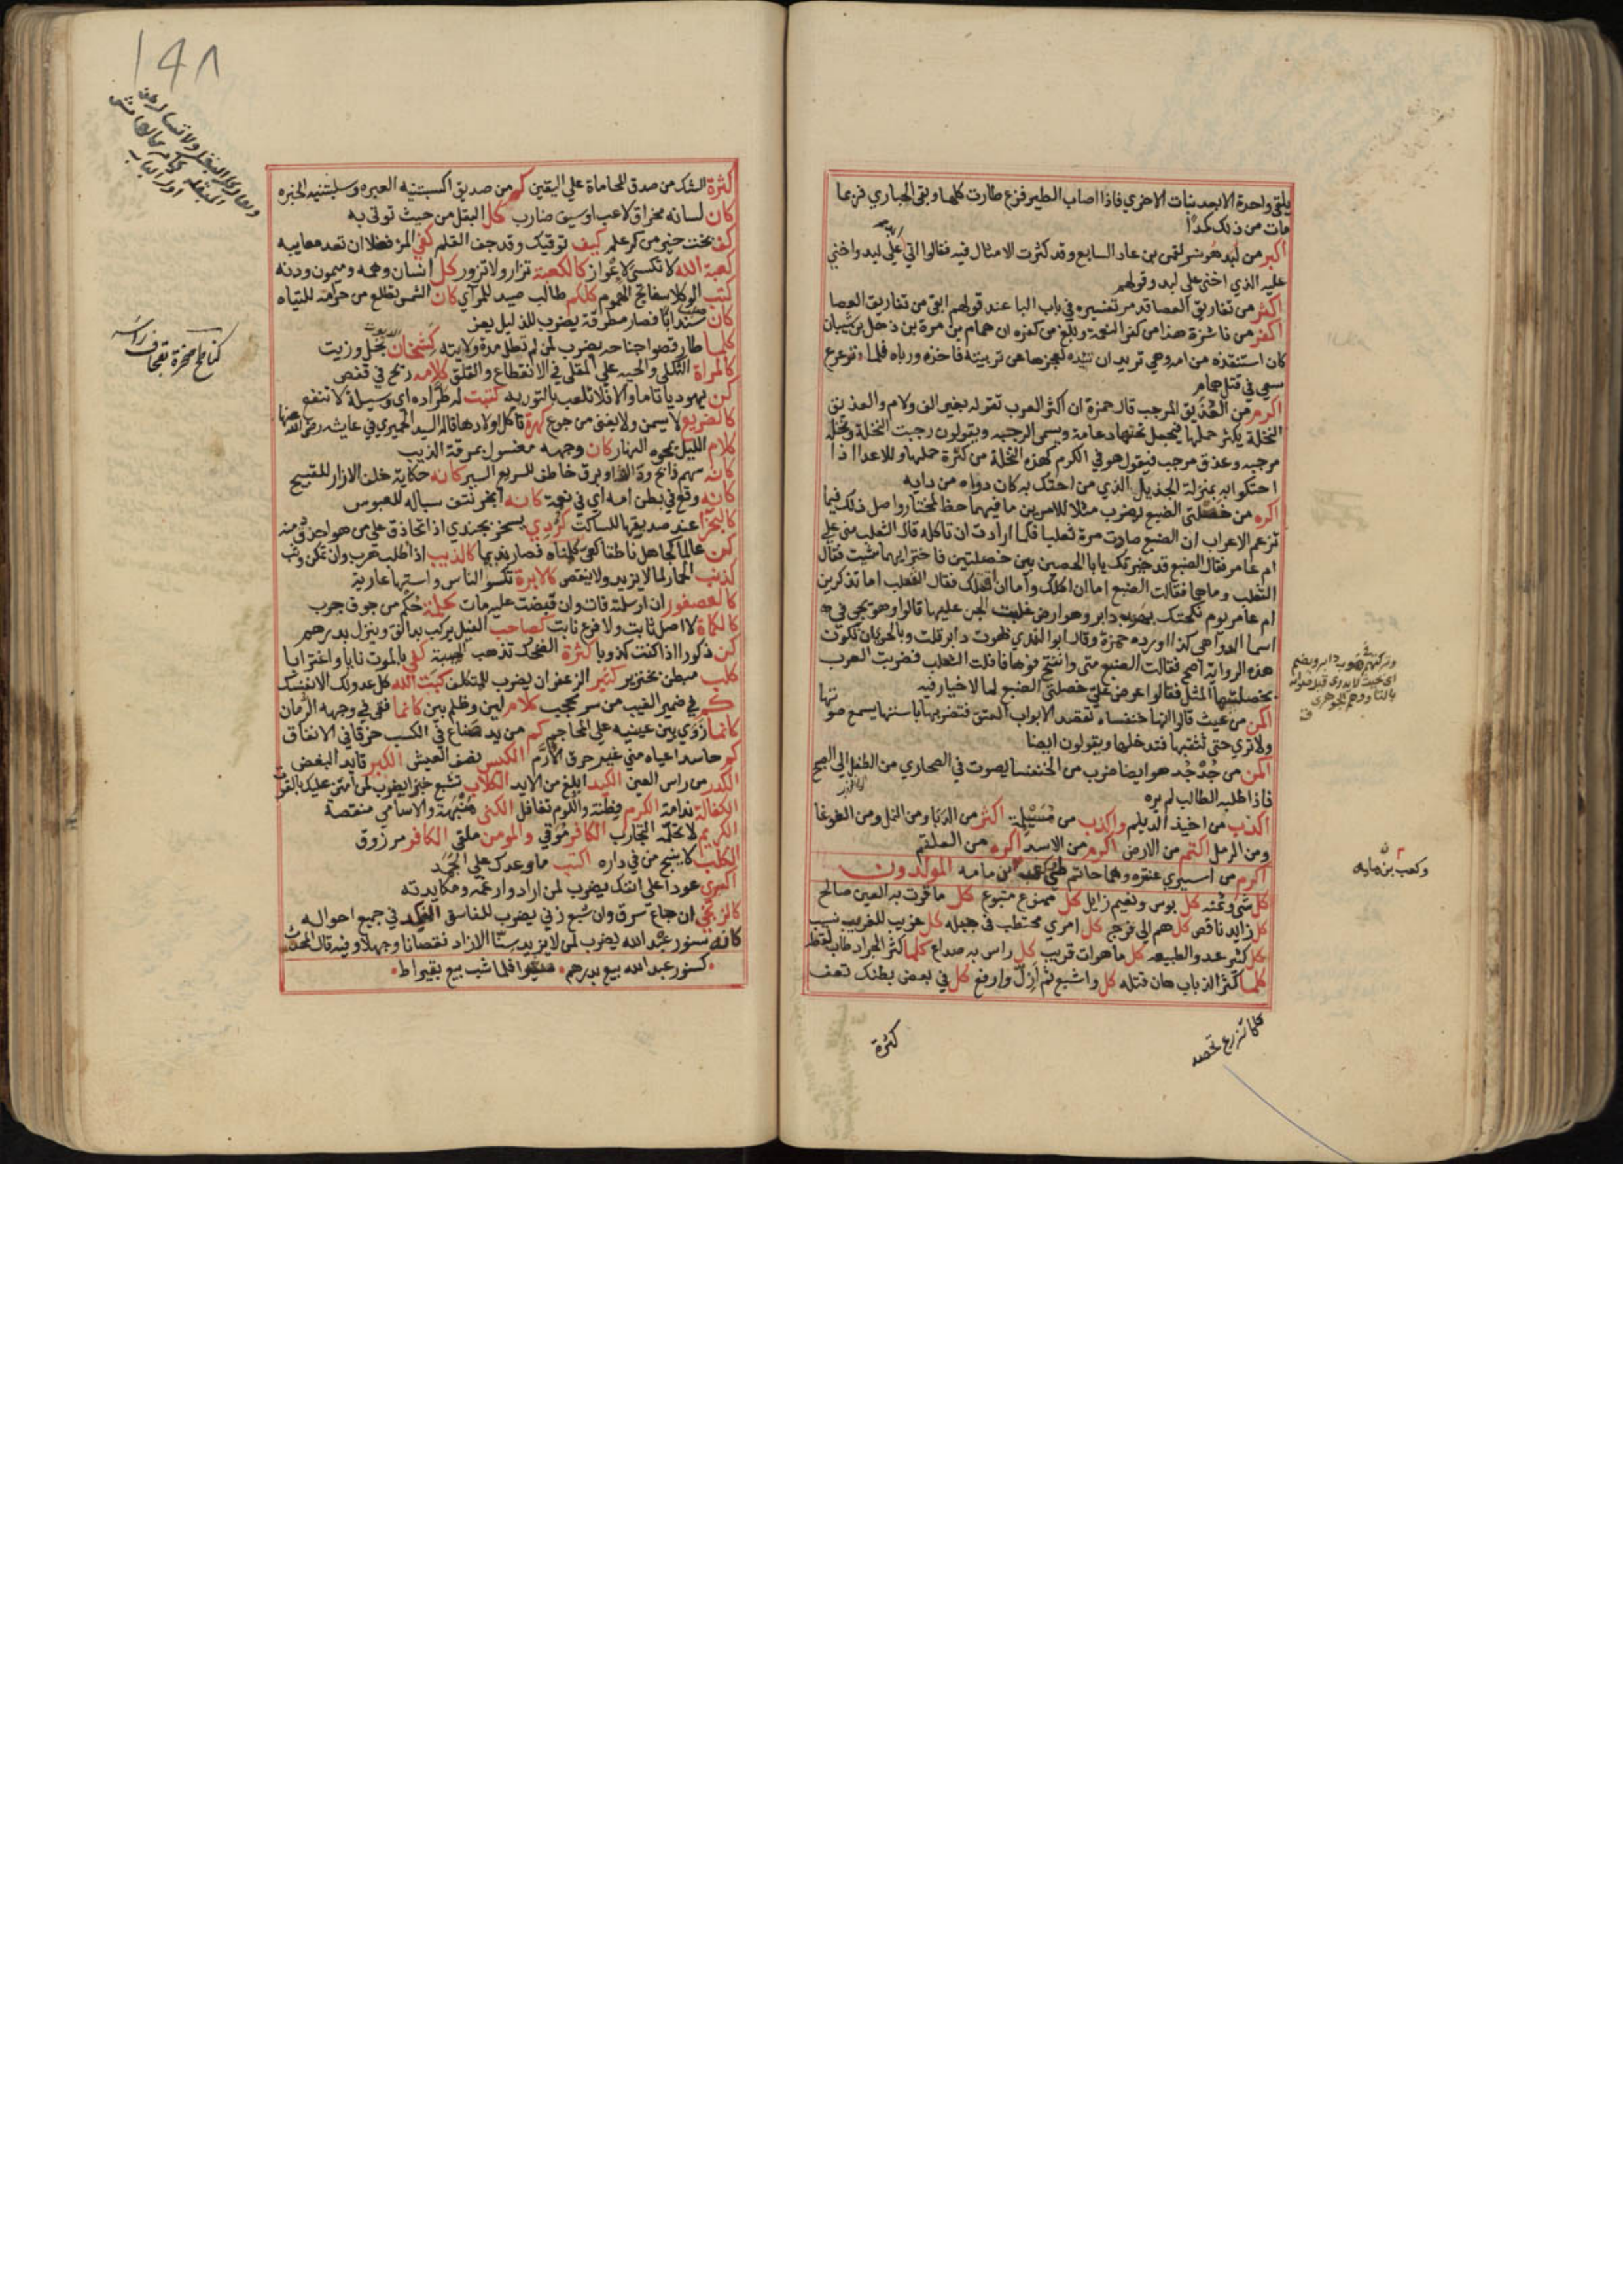 يلقي واحدة الا بعد نبات الاخري فاذا اصاب الطير فزع طارت كلها وبقي الحباري فربما
مات من ذلك كمدًا
اكبر من لبد هو نسر لقمن بن عاد السابع وقد كثرت الامثال فيه فقالوا اتي علي لبد واخني
عليه الذي اخني علي لبد وقولهم
اكثر من تفاريق العصا قد مر تفسيره في باب البا عند قولهم ابقي من تفاريق العصا
اكفر من ناشرة هذا من كفر النعمة وبلغ من كفره ان همام بن مرة بن ذهل بن شيبان
كان استنقذه من امه وهي تريد ان تئده لعجزها عن تربيته فاخذه ورباه فلما ترعرع
سعي في قتل همام
اكرم من العذيق المرجب قال حمزة ان اكثر العرب تقوله بغير الف ولام والعذيق
النخلة يكثر حملها فيجعل تحتها دعامة ويسمي الرجبه ويقولون رجبت النخلة ونخلة
مرجبه وعذق مرجب فيقول هو في الكرم كهذه النخلة من كثرة حملها وللاعدا اذا
احتكوا به بمنزلة الجذيل الذي من احتك به كان دواه من دايه
اكره من خصلتي الضبع يضرب مثلا للامرين ما فيهما حظ لمختار واصل ذلك فيما
تزعم الاعراب ان الضبع صادت مرة ثعلبا فلما ارادت ان تاكله قال الثعلب مني علي
ام عامر فقال الضبع قد خيرتك يا با الحصين بين خصلتين فاختر ايهما شيت فقال
الثعلب وما هما فقالت الضبع اما ان اكلك واما ان اقتلك فقال الثعلب اما تذكرين
ام عامر يوم نكحتك بهوب دابر وهو ارض غلبت الجن عليها قالوا وهو يجي في
اسما الدواهي كذا اورده حمزة وقال ابو الندي هوت دابر قلت وبالحري ان تكون
هذه الرواية اصح فقالت الضبع متي وانفتح فوها فافلت الثعلب فضربت العرب
بخصلتيها المثل فقالوا عرض علي خصلتي الضبع لما لا خيار فيه
اكمن من عيث قالوا انها خنفساء تقصد الابواب العتق فتضربها باستها يسمع صوتها
ولا تري حتي تثقبها فتدخلها ويقولون ايضا
اكمن من جدجد هو ايضا ضرب من الخنفسا يصوت في الصحاري من الطفل الي الصبح
فاذا طلبه الطالب لم يره
اكذب من اخيذ الديلم واكذب من مسيلمة اكثر من الدبا ومن النمل ومن الغوغا
ومن الرمل اكتم من الارض اكرم من الاسد اكره من العلقم
اكرم من اسيري عنزه وهما حاتم طي وكعب ابن مامه المولدون
كل شي وثمنه كل بوس ونعيم زايل كل ممنوع متبوع كل ما قرت به العين صالح
كل زايد ناقص كل هم الي فرج كل امري محتطب في حبله كل غريب للغريب نسيب
كل كثير عدو الطبيعه كل ما هوات قريب كل راس به صداع كلما كثر الجراد طاب لقطه
كلما كثر الذباب هان قتله كل واشبع ثم ازل وارفع كل في بعض بطنك تعف
كلما تزرع تحصد
كثرة
وكعب بن مامه
١٤٨
كثرة الشك من صدق المحاماة علي اليقين كم من صديق اكسبتنيه العبره وسلبتنيه الخبره
كان لسانه مخراق لاعب او سيف ضارب كل البقل من حيث توتي به
كف بخت خير من كر علم كيف توقيك وقد جف القلم كفي المرء فضلا ان تعد معايبه
كعبة الله لا تكسي لاعواز كالكعبة تزار ولا تزور كل انسان وهمه وميمون ودنه
كتب الوكلا مفاتح الهموم كلكم طالب صيد للمرائي كان الشمس تطلع من حرامه للتياه
كان سندانا فصار مطرقة يضرب للذليل يعز
كلما طار قصوا جناحه يضرب لمن لم تطل مدة ولايته كشخان بخل وزيت
كالمراة الثكلي والحبه علي المقلي في الانقطاع والقلق كلامه ريح في قفص
كن يهوديا تاما والا فلا تلعب بالتوريه كتبت له طراده اي وسيلة لا تنفع
كالضريع لا يسمن ولا يغني من جوع كهرة تاكل اولادها قاله السيد الحميري في عايشه رضي الله عنها
كلام الليل يمحوه النهار كان وجهه مغسول بمرقة الذيب
كانه سهم زالج وبرق خاطف للسريع السير كانه حكاية خلف الازار للقبيح
كانه وقع في بطن امه اي في نعمة كانه ابخر نتف سباله للعبوس
كالبخرا عند صديقها للساكت كردي يسخر بجندي اذا تحاذق علي من هو احذق منه
كن عالما كجاهل ناطقا كعي كالذيب اذا طلب هرب وان تمكن وثب
كذنب الحمار لما لا يزيد ولا ينقص كالابرة تكسو الناس واستها عارية
كالعصفور ان ارسلته فات وان قبضت عليه مات
كالكماة لا اصل ثابت ولا فرع نابت كصاحب الفيل يركب بدانق وينزل بدرهم
كن ذكورا اذا كنت كذوبا كثرة الضحك تذهب الهيبة كفي بالموت نايا واغترابا
كلب مبطن بخنزير كثير الزعفران يضرب للمتكلف كبت الله كل عدو لك الا نفسك
كم في ضمير الغيب من سر محجب كلام لين وظلم بين كانما فقي في وجهه الرمان
كانما زوي بين عينيه علي المحاجم كم من يد صناع في الكسب خرقا في الانفاق
كم حاسد اعياه مني غير حرق الارم الكيس نصف العيش الكبر قايد البغض
الكدر من راس العين الكيد ابلغ من الايد الكلاب تشبع خبزا يضرب لمن امتن عليك بالقوت
الكفالة ندامة الكرم فطنة واللوم تغافل الكني منبهة والاسامي منقصة
الكريم لا تحلمه التجارب الكافر موقي والمومن ملقي الكافر مرزوق
الكلب لا ينبح من في داره اكتب ما وعدك علي الجمد
اكسري عودا علي انفك يضرب لمن اراد وا رغمه ومكايدته
كالزنجي ان جاع سرق وان شبع زني يضرب للفاسق النكد في جميع احواله
كانه سنور عبد الله يضرب لمن لا يزيد سنا الا زاد نقصانا وجهلا وفيه قال المحدث
كسنور عبد الله بيع بدرهم صغيرا فلما شب بيع بقيراط
كناطح صخرة بقحاف راسه